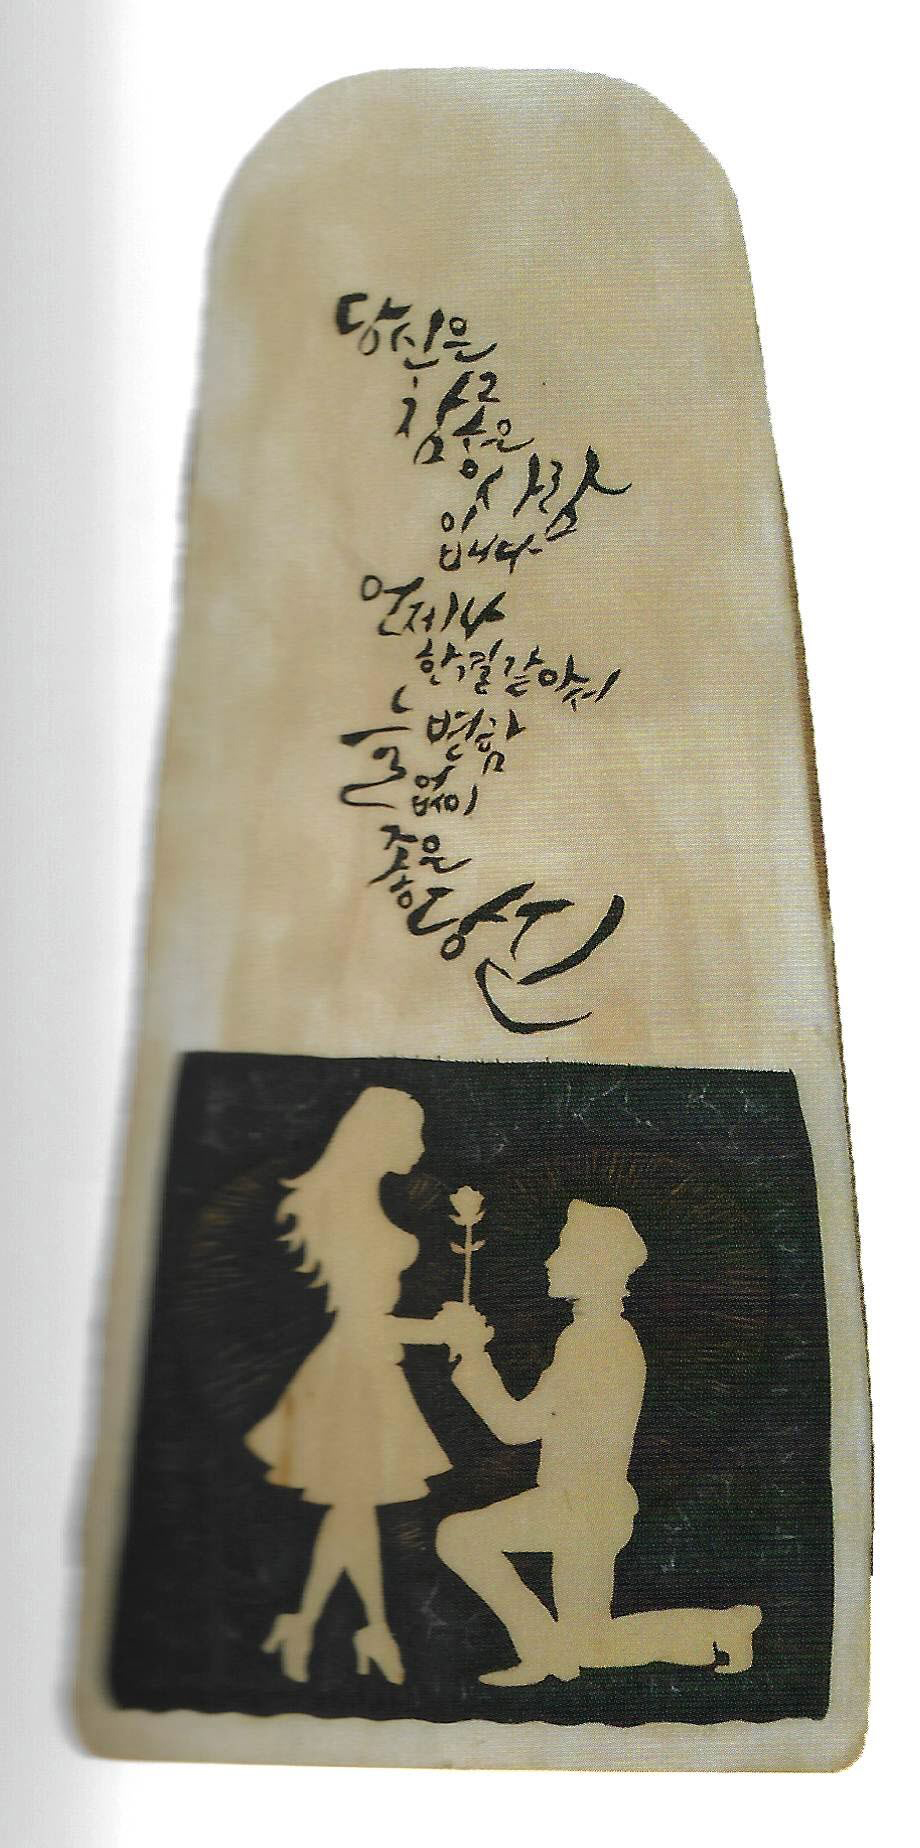 당신은
참
사람
입니다
언제나
한결같아서
늘 변함
없이
좋은
당신